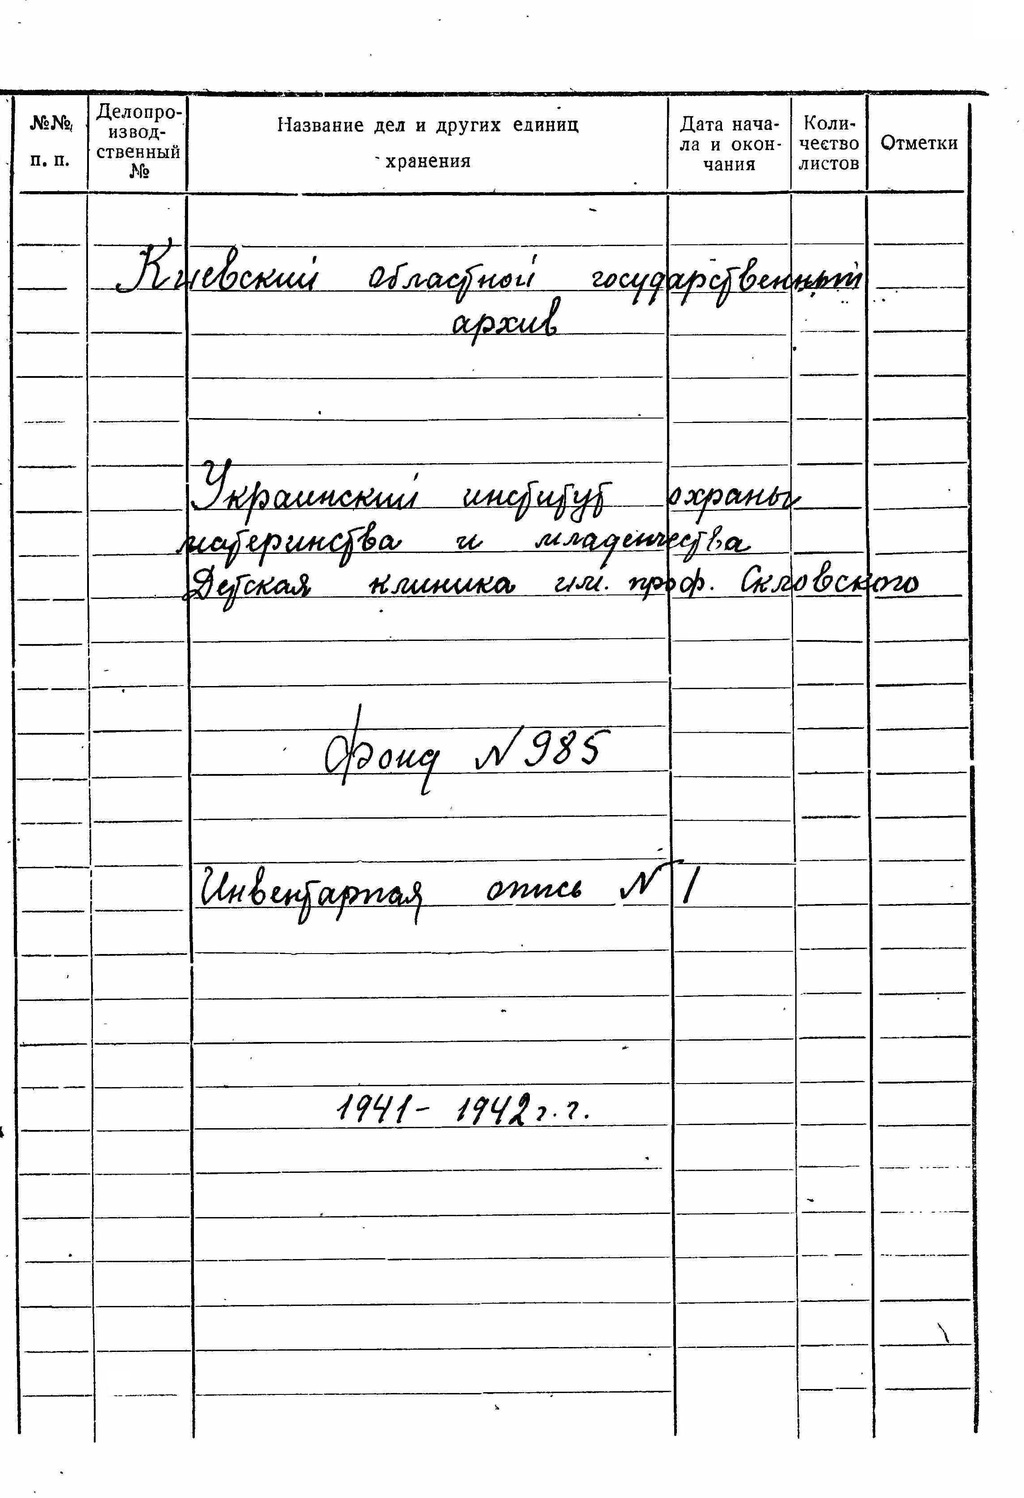 №№ п. п.
Делопро-
извод-
ственный
№
Название дел и других единиц
хранения
Дата нача-
ла и окон-
чания
Коли-
чество
листов
Отметки
Киевский областной государственный
архив
Украинский институт охраны
материнства и младенчества
Детская клиника им. проф. Скловского
Фонд N 985
Инвентарная опись N 1
1941 - 1942 г.г.